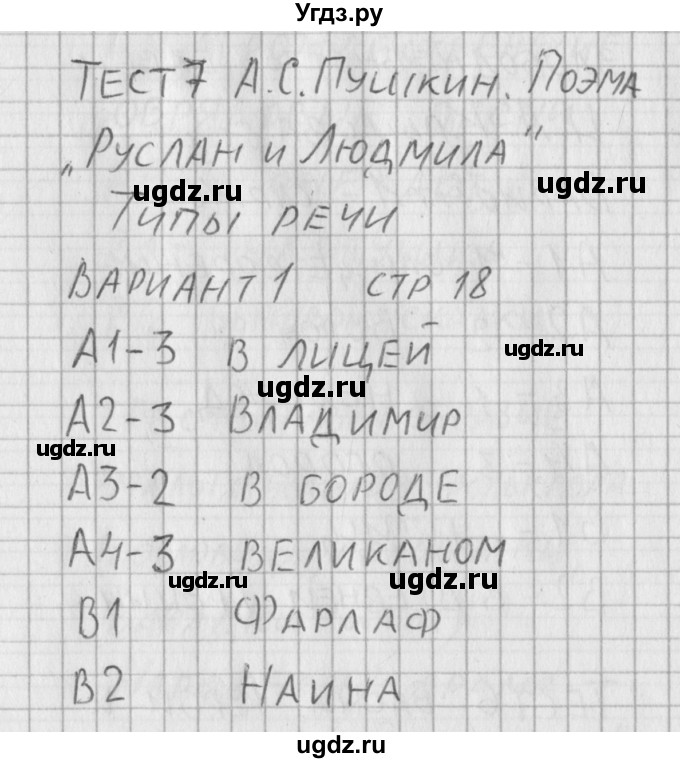 Угдз.ру
ТЕСТ 7 А.С. ПУШКИН. ПОЭМА
„РУСЛАН И ЛЮДМИЛА"
ugdz.ru ugdz.ru
ТИПЫ РЕЧИ
ВАРИАНТ 1 СТР 18
А1-3 В ЛИЦЕЙ
ugdz.ru
ugdz.ru
А2-3 ВЛАДИМИР
ugdz.ru
А3-2 В БОРОДЕ
А4-3 ВЕЛИКАНОМ
ugdz.ru ugdz.ru
В1 ФАРЛАФ
В2 НАИНА
ugdz.ru